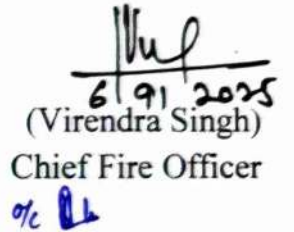 6/9/2025
(Virendra Singh)
Chief Fire Officer
o/c